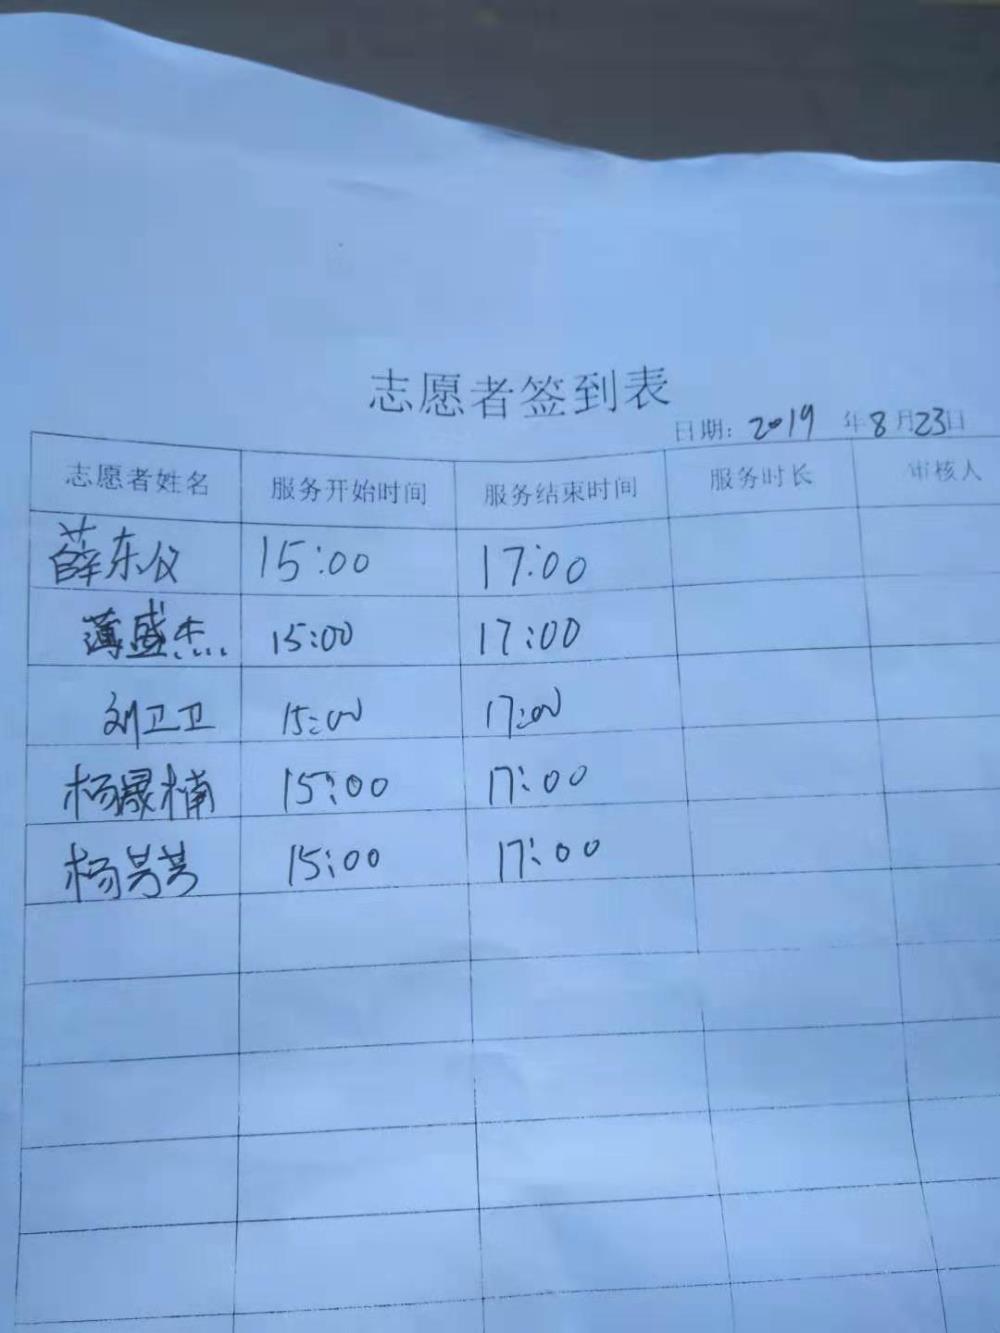 志愿者签到表
日期：2019 年8月23日
志愿者姓名 服务开始时间 服务结束时间 服务时长 审核人
薛东仪 15:00 17:00
薄盛杰 15:00 17:00
刘卫卫 15:00 17:00
杨晟楠 15:00 17:00
杨芳芳 15:00 17:00